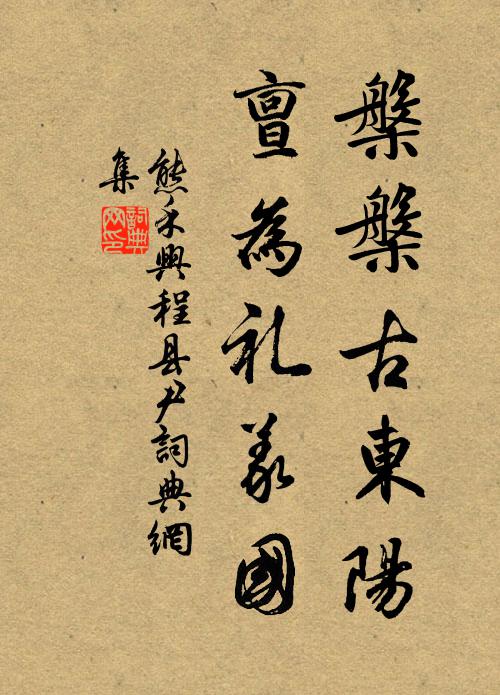 槃槃古東陽
亶為礼義國
熊禾與程县尹詞典網
集
詞典
网印